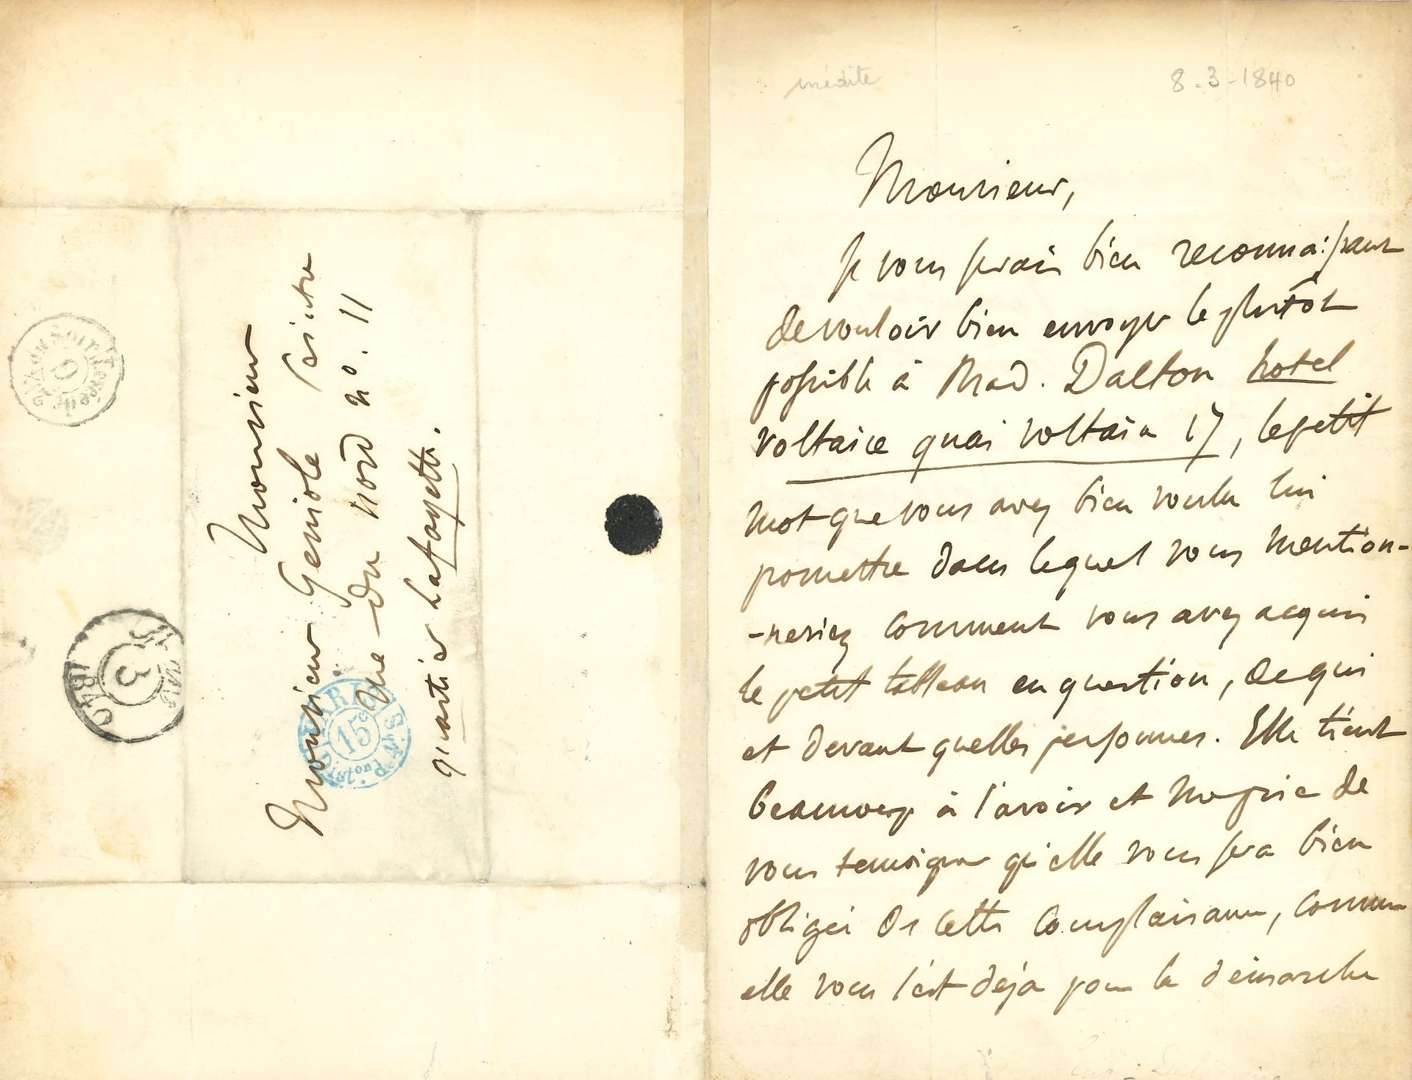 Monsieur
Monsieur Geniole Peintre
rue du nord n°. 11
quartier Lafayette.
PARIS
15
1840
3
inédite
8.3-1840
Monsieur,
Je vous serais bien reconnaissant
de vouloir bien envoyer le plutôt
possible à Mad. Dalton hotel
voltaire quai voltaire 17, le petit
mot que vous avez bien voulu lui
promettre dans lequel vous mention-
-neriez comment vous avez acquis
le petit tableau en question, de qui
et devant quelles personnes. Elle tient
beaucoup à l'avoir et me prie de
vous temoigner qu'elle vous sera bien
obligée de cette complaisance, comme
elle vous l'est déjà pour la démarche